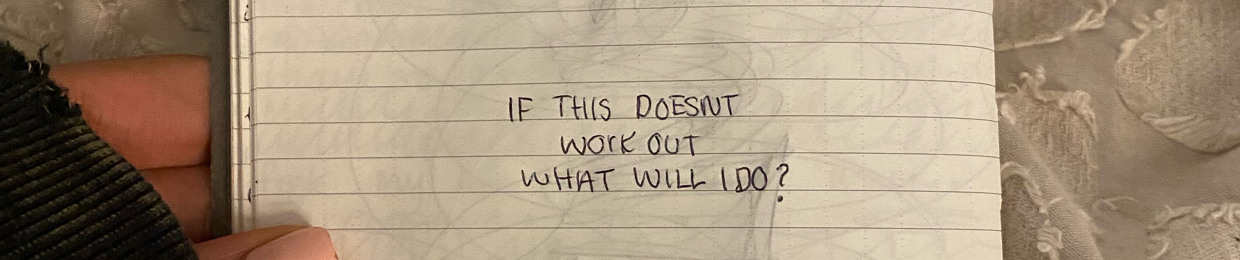 IF THIS DOESNT
WORK OUT
WHAT WILL I DO?